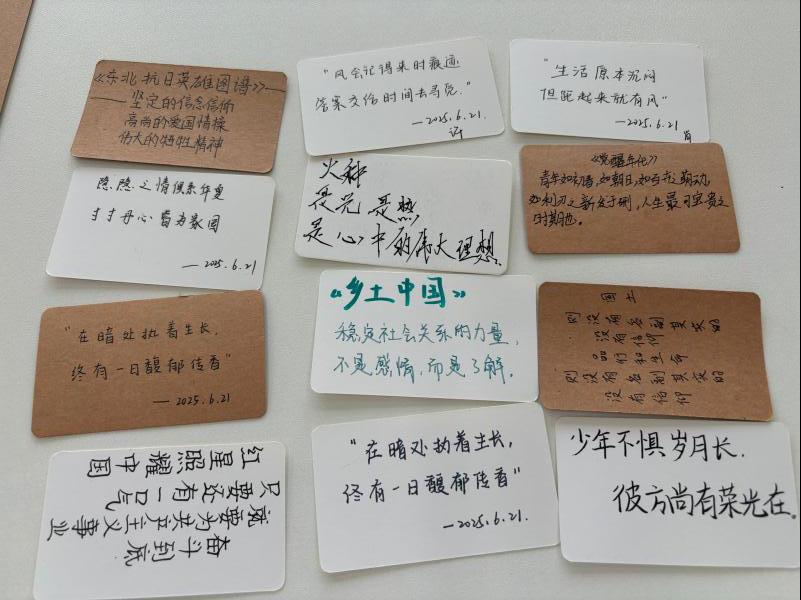 《东北抗日英雄图谱》——
——坚定的信念信仰
高尚的爱国情操
伟大的牺牲精神
"风会记得来时痕迹
答案交给时间去与见"
—2025.6.21.
"生活原本沉闷
但跑起来就有风"
—2025.6.21
隐隐之情俱系华夏
寸寸丹心皆为家国
—2025.6.21
火种
是光 是热
是心中的伟大理想。
《觉醒年代》
青年如初春，如朝日，如百卉之萌动，
如利刃之新发于硎，人生最可宝贵之
时期也。
"在暗处执着生长，
终有一日馥郁传香"
—2025.6.21
《乡土中国》
稳定社会关系的力量，
不是感情，而是了解。
国土
则没有名副其实的
没有信仰
品们和生命
则没有名副其实的
没有信仰
红星照耀中国
只要还有一口气
就要为共产主义事业
奋斗到底
"在暗处执着生长，
终有一日馥郁传香"
—2025.6.21.
少年不惧岁月长，
彼方尚有荣光在。